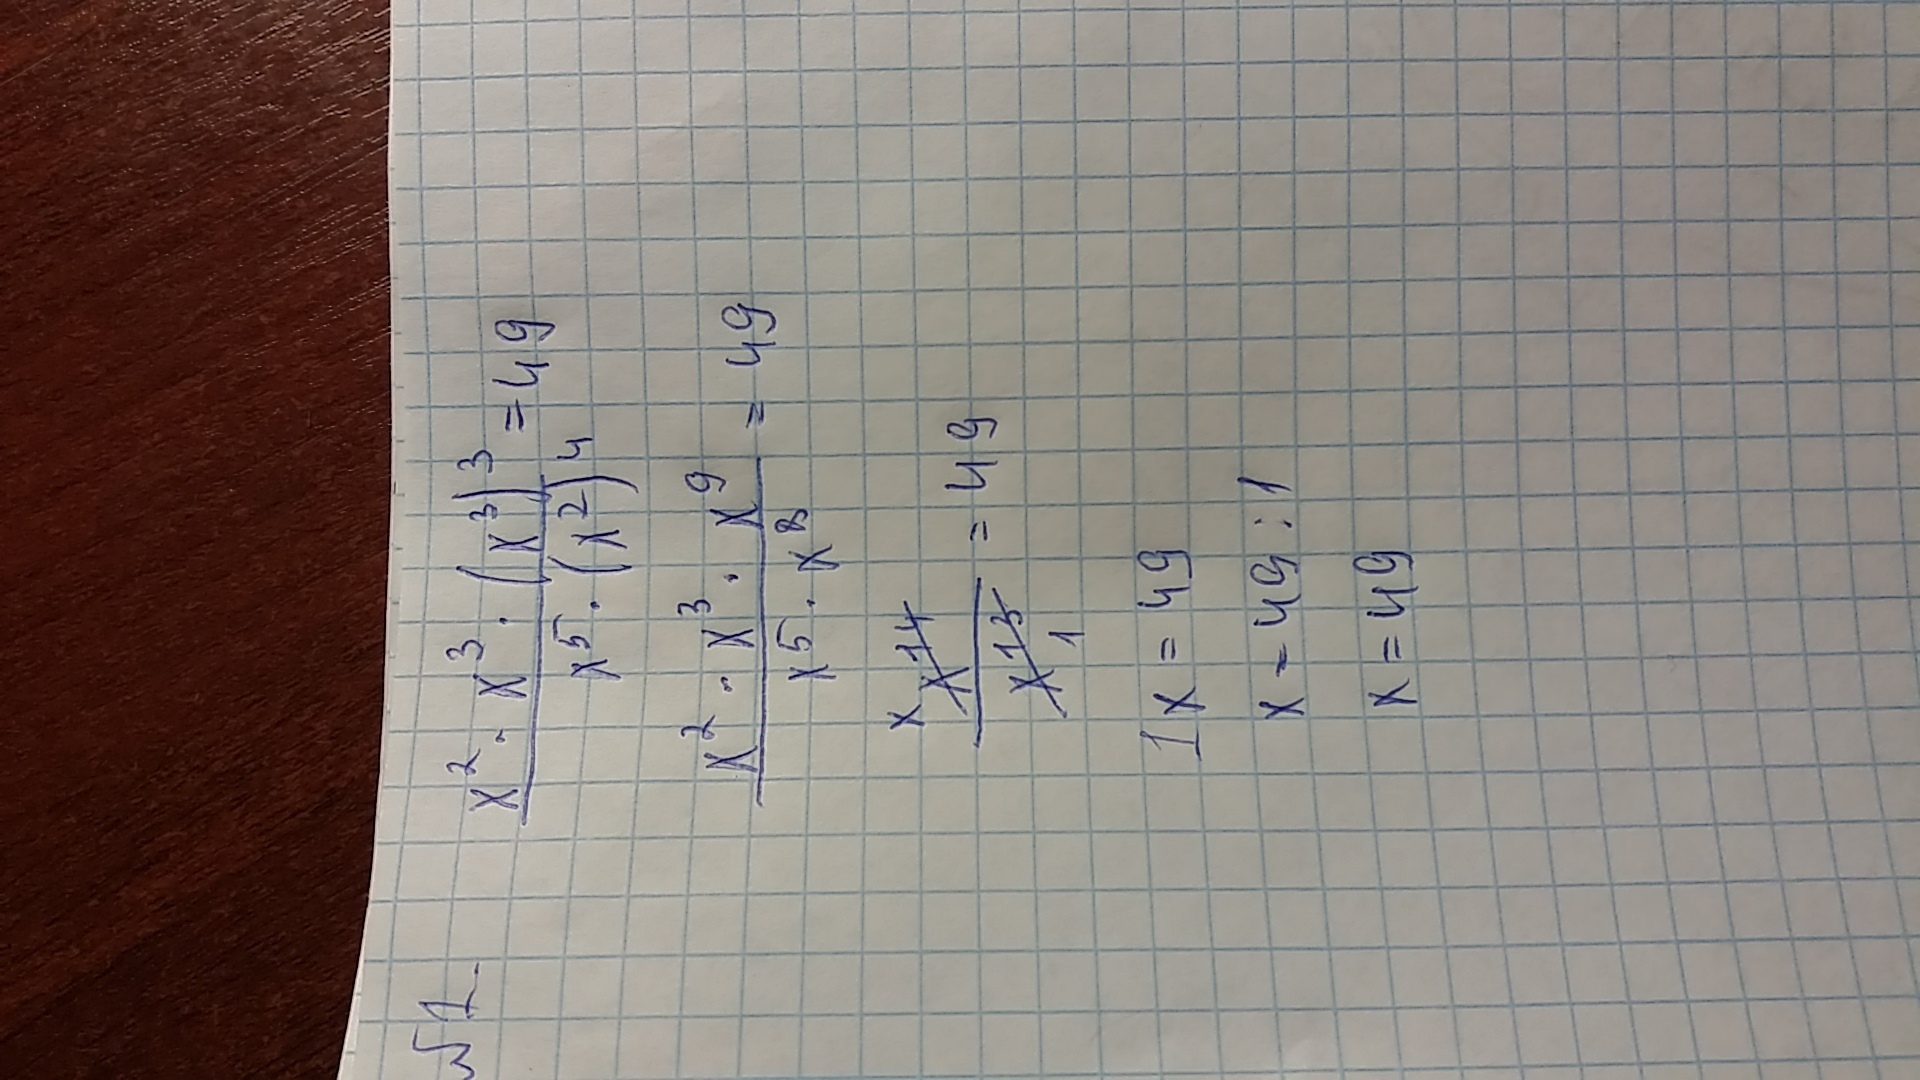 №1
x² · x³ · (x³)³ / x⁵ · (x²)⁴ = 49
x² · x³ · x⁹ / x⁵ · x⁸ = 49
x x¹⁴ / x¹³ 1 = 49
1x = 49
x = 49 : 1
x = 49